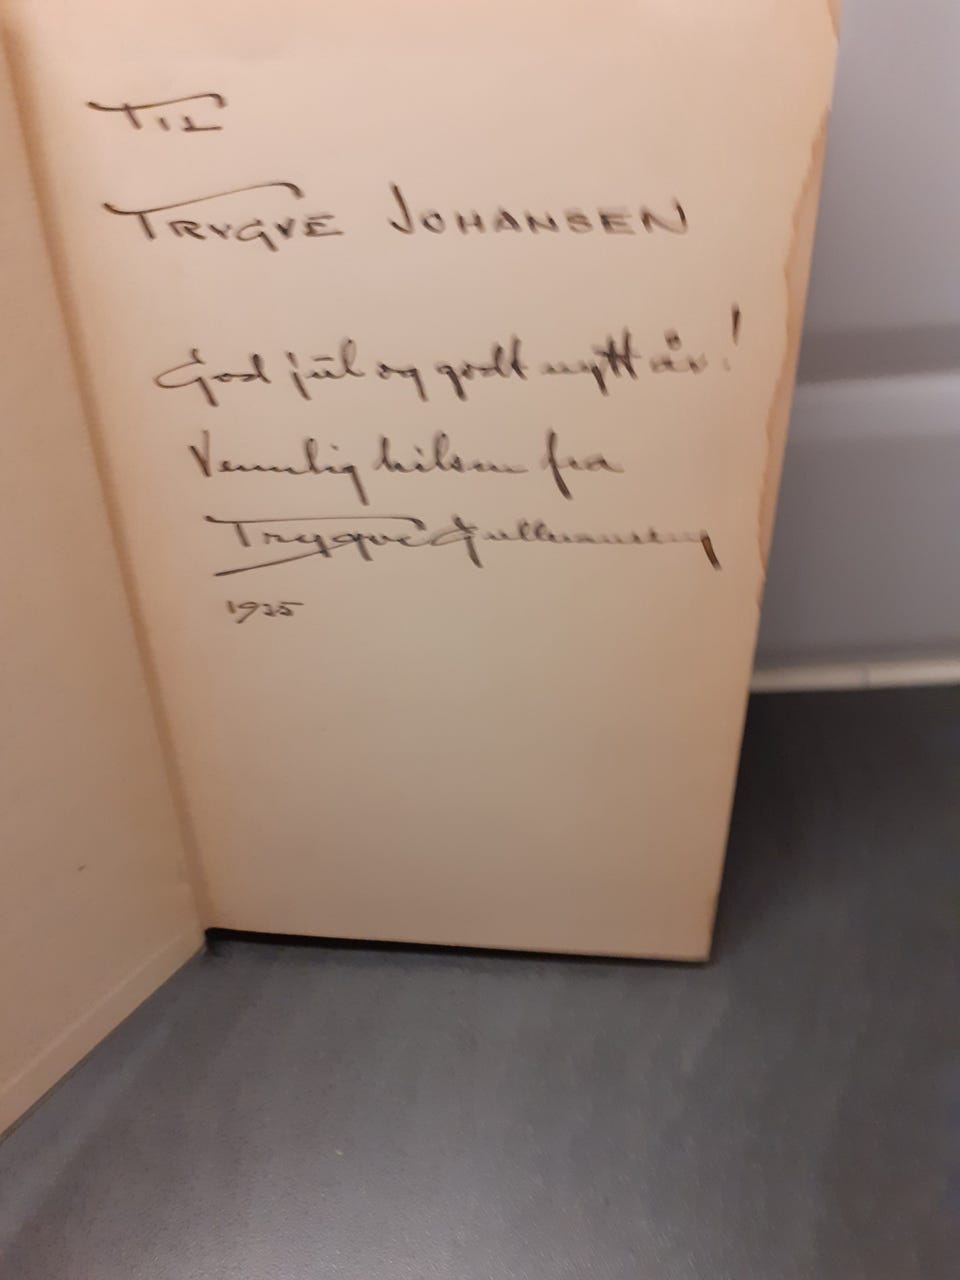 TIL
TRYGVE JOHANSEN
God jul og godt nytt år!
Vennlig hilsen fra
Trygve Gulbranssen
1935